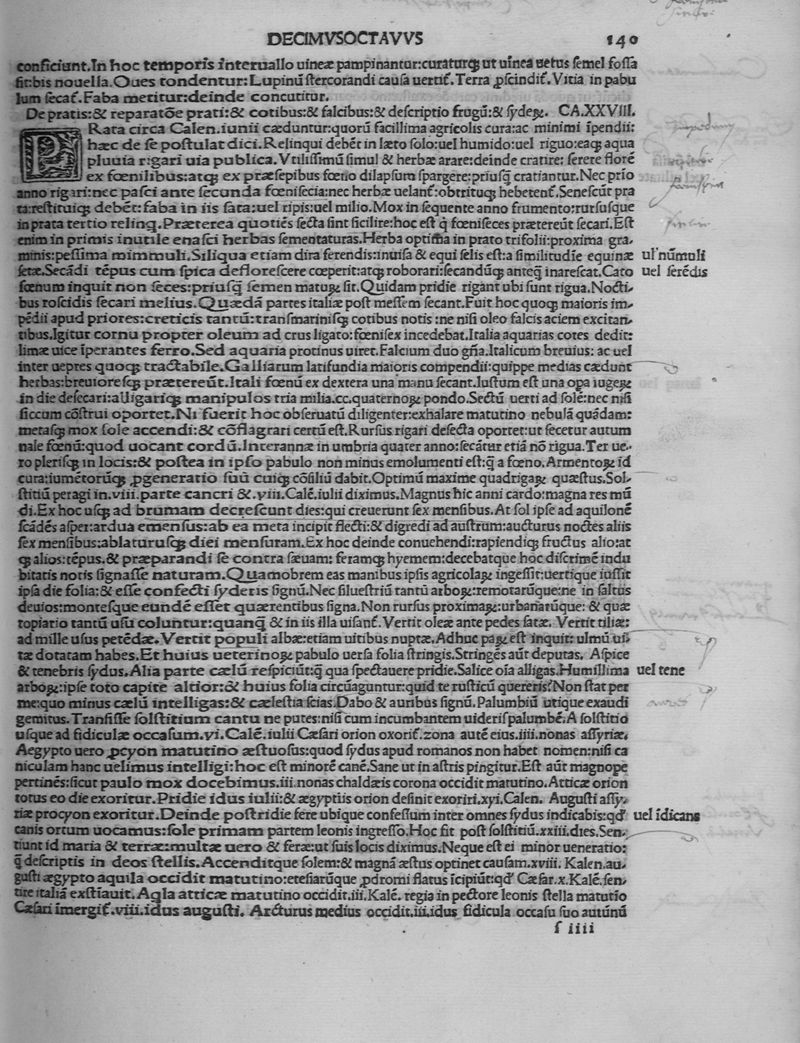 DECIMVSOCTAVVS 140
conficiunt.In hoc temporis interuallo uineæ pampinantur:curaturqꝫ ut uinea uetus ſemel foſſa
ſit:bis nouella.Oues tondentur:Lupinū ſtercorandi cauſa uertit᷒.Terra ꝓſcindit᷒.Vitia in pabu
lum ſecat᷒.Faba metitur:deinde concutitur.
De pratis:& reparatōe prati:& cotibus:& falcibus:& deſcriptio frugū:& ſydeꝝ. CA.XXVIII.
PRata circa Calen.iunii cæduntur:quorū facillima agricolis cura:ac minimi īpendii:
hæc de ſe poſtulat dici.Relinqui debēt in læto ſolo:uel humido:uel riguo:eaqꝫ aqua
pluuia rigari uia publica.Vtiliſſimū ſimul & herbæ arare:deinde cratire: ſerere florē
ex fœnilibus:atqꝫ ex præſepibus fœno dilapſum ſpargere:priuſq̄ cratiantur.Nec prio
anno rigari:nec paſci ante ſecunda fœniſecia:nec herbæ uelant᷒:obtrituqꝫ hebetent᷒.Seneſcūt pra
ta:reſtituiqꝫ debēt:faba in iis ſata:uel ripis:uel milio.Mox in ſequente anno frumento:rurſuſque
in prata tertio relinq̄.Præterea quotiēs ſecta ſint ſicilire:hoc eſt q̄ fœniſeces prætereūt ſecari.Eſt
enim in primis inutile enaſci herbas ſementaturas.Herba optima in prato trifolii:proxima gra,
minis:peſſima mimmuli.Siliqua etiam dira ferendis:inuiſa & equi ſelis eſt:a ſimilitudīe equinæ ul'nūmuli
ſetæ.Secādi tēpus cum ſpica defloreſcere cœperit:atqꝫ roborari:ſecandūqꝫ anteq̄ inareſcat.Cato uel ferēdis
fœnum inquit non ſeces:priuſq̄ ſemen matuꝝ ſit.Quidam pridie rigant ubi ſunt rigua.Nocti,
bus roſcidis ſecari melius.Quædā partes italiæ poſt meſſem ſecant.Fuit hoc quoqꝫ maioris im,
pēdii apud priores:creticis tantū:tranſmariniſqꝫ cotibus notis :ne niſi oleo falcis aciem excitan,
tibus.Igitur cornu propter oleum ad crus ligato:fœniſex incedebat.Italia aquarias cotes dedit:
limæ uice īperantes ferro.Sed aquaria protinus uiret.Falcium duo gn̄a.Italicum breuius: ac uel
inter uepres quoqꝫ tractabile.Galliarum latifundia maioris compendii:quippe medias cædunt
herbas:breuioreſqꝫ prætereūt.Itali fœnū ex dextera una manu ſecant.Iuſtum eſt una oꝑa iugeꝝ
in die deſecari:alligariqꝫ manipulos tria milia.cc.quaternoꝝ pondo.Sectū uerti ad ſolē:nec niſi
ſiccum cōſtrui oportet.Ni fuerit hoc obſeruatū diligenter:exhalare matutino nebulā quādam:
metaſqꝫ mox ſole accendi:& cōflagrari certū eſt.Rurſus rigari deſecta oportet:ut ſecetur autum
nale fœnū:quod uocant cordū.Interannæ in umbria quater anno:ſecātur etiā nō rigua.Ter ue,
ro pleriſqꝫ in locis:& poſtea in ipſo pabulo non minus emolumenti eſt:q̄ a fœno.Armentoꝝ id
cura:iumētorūqꝫ ꝓgeneratio ſuū cuiqꝫ cōſiliū dabit.Optimū maxime quadrigaꝝ quæſtus.Sol,
ſtitiū peragi in.viii.parte cancri &.viii.Calē.iulii diximus.Magnus hic anni cardo:magna res mū
di.Ex hoc uſqꝫ ad brumam decreſcunt dies:qui creuerunt ſex menſibus.At ſol ipſe ad aquilonē
ſcādēs aſper:ardua emenſus:ab ea meta incipit flecti:& digredi ad auſtrum:aucturus noctes aliis
ſex menſibus:ablaturuſqꝫ diei menſuram.Ex hoc deinde conuehendi:rapiendiqꝫ fructus alio:at
qꝫ alios:tēpus.& præparandi ſe contra ſæuam: feramqꝫ hyemem:decebatque hoc diſcrimē indu
bitatis notis ſignaſſe naturam.Quamobrem eas manibus ipſis agricolaꝝ ingeſſit:uertique iuſſit
ipſa die folia:& eſſe confecti ſyderis ſignū.Nec ſilueſtriū tantū arboꝝ:remotarūque:ne in ſaltus
deuios:monteſque eundē eſſet quærentibus ſigna.Non rurſus proximaꝝ:urbanarūque: & quæ
topiario tantū uſu coluntur:quanq̄ & in iis illa uiſant᷒.Vertit oleæ ante pedes ſatæ. Vertit tiliæ:
ad mille uſus petēdæ.Vertit populi albæ:etiam uitibus nuptæ.Adhuc paꝝ eſt inquit: ulmū ui,
tæ dotatam habes.Et huius ueterinoꝝ pabulo uerſa folia ſtringis.Stringēs aūt deputas. Aſpice
& tenebris ſydus.Alia parte cælū reſpiciūt:q̄ qua ſpectauere pridie.Salice oīa alligas.Humillima uel tene
arboꝝ:ipſe toto capite altior:& huius folia circūaguntur:quid te ruſticū quereris?Non ſtat per
me:quo minus cælū intelligas:& cæleſtia ſcias.Dabo & auribus ſignū.Palumbiū utique exaudi
gemitus.Tranſiſſe ſolſtitium cantu ne putes:niſi cum incumbantem uideriſpalumbē.A ſolſtitio
uſque ad fidiculæ occaſum.vi.Calē.iulii Cæſari orion oxorit᷒.zona autē eius.iiii.nonas aſſyriæ,
Aegypto uero ꝓcyon matutino æſtuoſus:quod ſydus apud romanos non habet nomen:niſi ca
niculam hanc uelimus intelligi:hoc eſt minorē canē.Sane ut in aſtris pingitur.Eſt aūt magnope
pertinēs:ſicut paulo mox docebimus.iii.nonas chaldæis corona occidit matutino.Atticæ orion
totus eo die exoritur.Pridie idus iulii:& ægyptiis orion deſinit exoriri.xyi.Calen. Auguſti aſſy,
riæ procyon exoritur.Deinde poſtridie fere ubique confeſſum inter omnes ſydus indicabis:qd᷒ uel īdicans
canis ortum uocamus:ſole primam partem leonis ingreſſo.Hoc fit poſt ſolſtitiū.xxiii.dies.Sen,
tiunt id maria & terræ:multæ uero & feræ:ut ſuis locis diximus.Neque eſt ei minor ueneratio:
q̄ deſcriptis in deos ſtellis.Accenditque ſolem:& magnā æſtus optinet cauſam.xviii. Kalen.au,
guſti ægypto aquila occidit matutino:eteſiarūque ꝓdromi flatus īcipiūt:qd᷒ Cæſar.x.Kalē.ſen,
tire italiā exſtīauit.Aqla atticæ matutino occidit.iii.Kalē. regia in pectore leonis ſtella matutio
Cæſari īmergit᷒.viii.idus auguſti. Arcturus medius occidit.iii.idus fidicula occaſu ſuo autūnū
ſ iiii